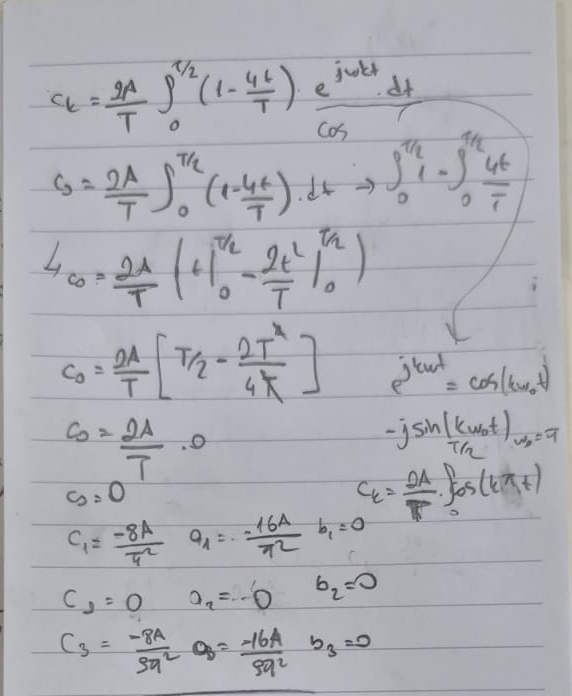 c_k = 2A/T ∫_0^{T/2} (1 - 4t/T) · e^{jwkt} · dt
cos
c_0 = 2A/T ∫_0^{T/2} (1 - 4t/T) · dt → ∫_0^{T/2} 1 - ∫_0^{T/2} 4t/T
↳ c_0 = 2A/T ( t|_0^{T/2} - 2t²/T |_0^{T/2} )
c_0 = 2A/T [ T/2 - 2T²/4T ]
e^{jkwt} = cos(kw_0t)
c_0 = 2A/T · 0
-j sin(kw_0t) w_0=π
c_0 = 0
c_k = 2A/T · ∫_0^{T/2} cos(kπ,t)
C_1 = -8A/π² a_1 = -16A/π² b_1 = 0
C_2 = 0 a_2 = 0 b_2 = 0
C_3 = -8A/9π² a_3 = -16A/9π² b_3 = 0